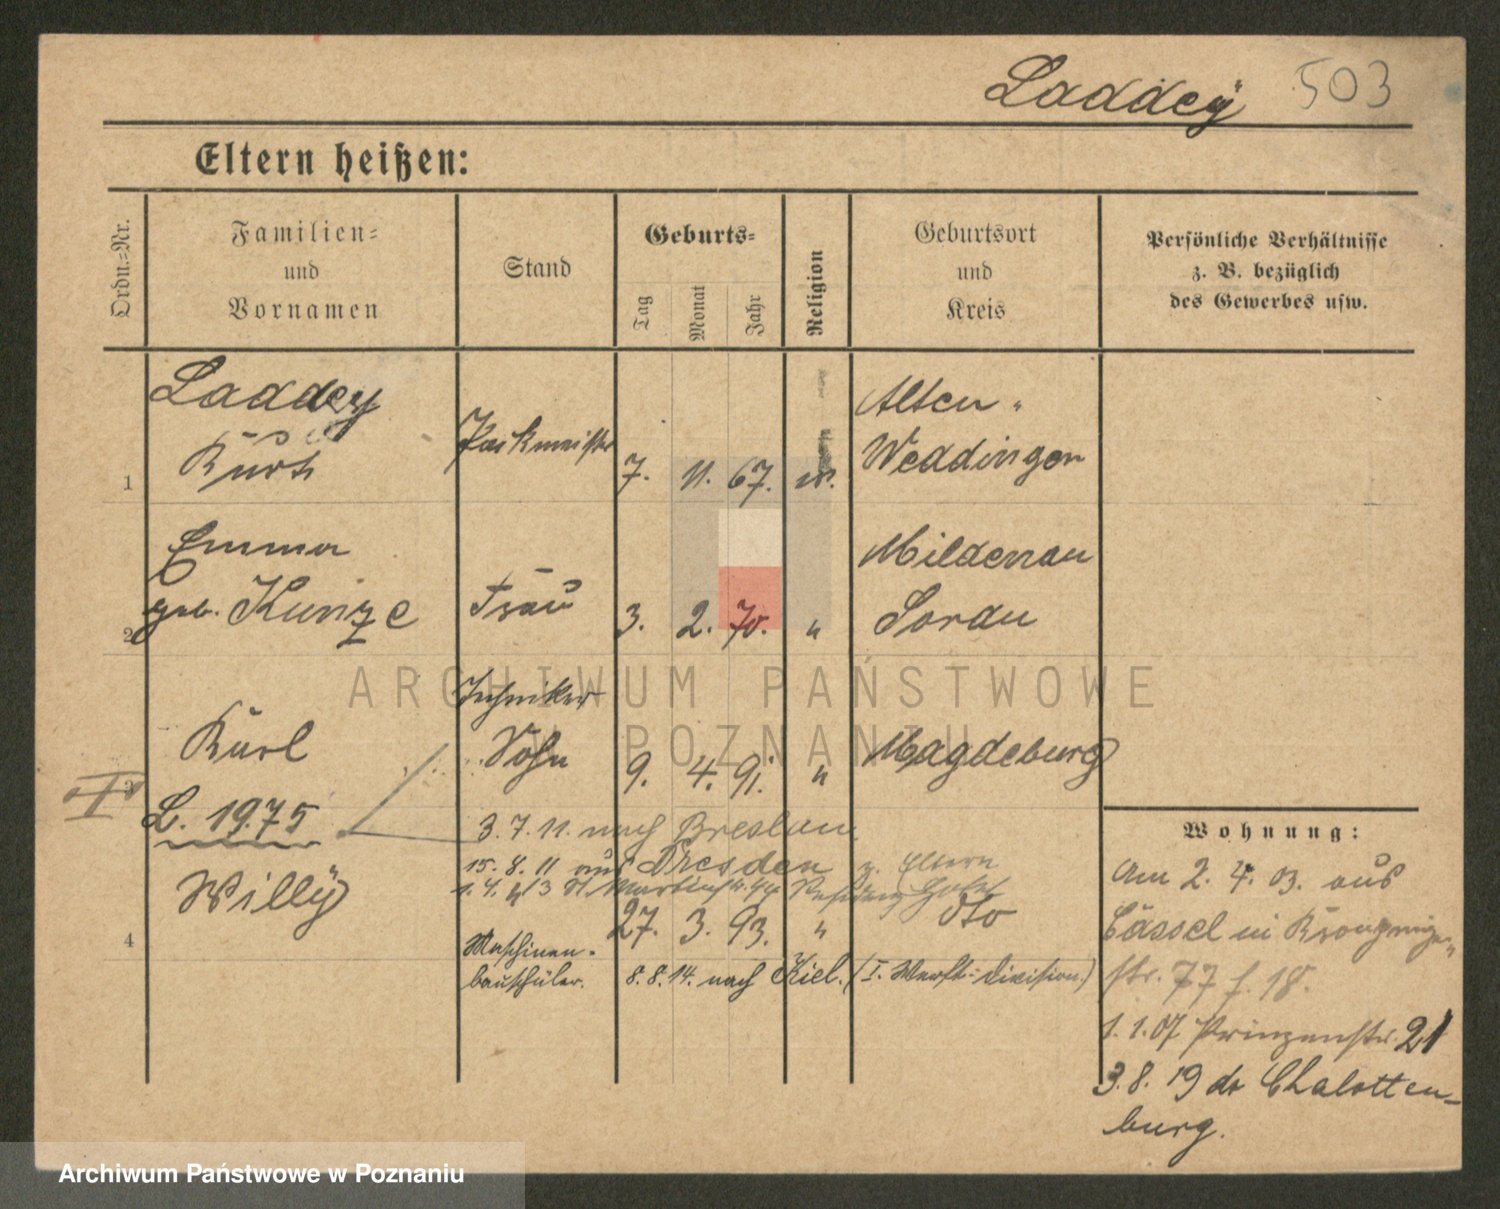 Laddey 503
Eltern heißen:
Ordn.-Nr.
Familien-
und
Vornamen
Stand
Geburts-
Tag
Monat
Jahr
Religion
Geburtsort
und
Kreis
Persönliche Verhältnisse
z. B. bezüglich
des Gewerbes usw.
Laddey
Kurt
1
Packmeister
7. 11. 67.
Alten-
Weddingen
Emma
geb. Kunze
2
Frau
3. 2. 70. "
Mildenau
Sorau
Techniker
Karl
Sohn
9. 4. 91. "
Magdeburg
L. 1975
3. 7. 11. nach Breslau
15. 8. 11 aus Dresden z. Eltern
Willy
4
27. 3. 93. "
dto
Maschinen-
bauschüler.
8. 8. 14. nach Kiel. (I. Werft-Division.)
Wohnung:
Am 2. 4. 03. aus
Cassel in
str. 77
1. 1. 07 Prinzenstr. 21
3. 8. 19 Chalotten-
burg.
ARCHIWUM PAŃSTWOWE
W POZNANIU
Archiwum Państwowe w Poznaniu